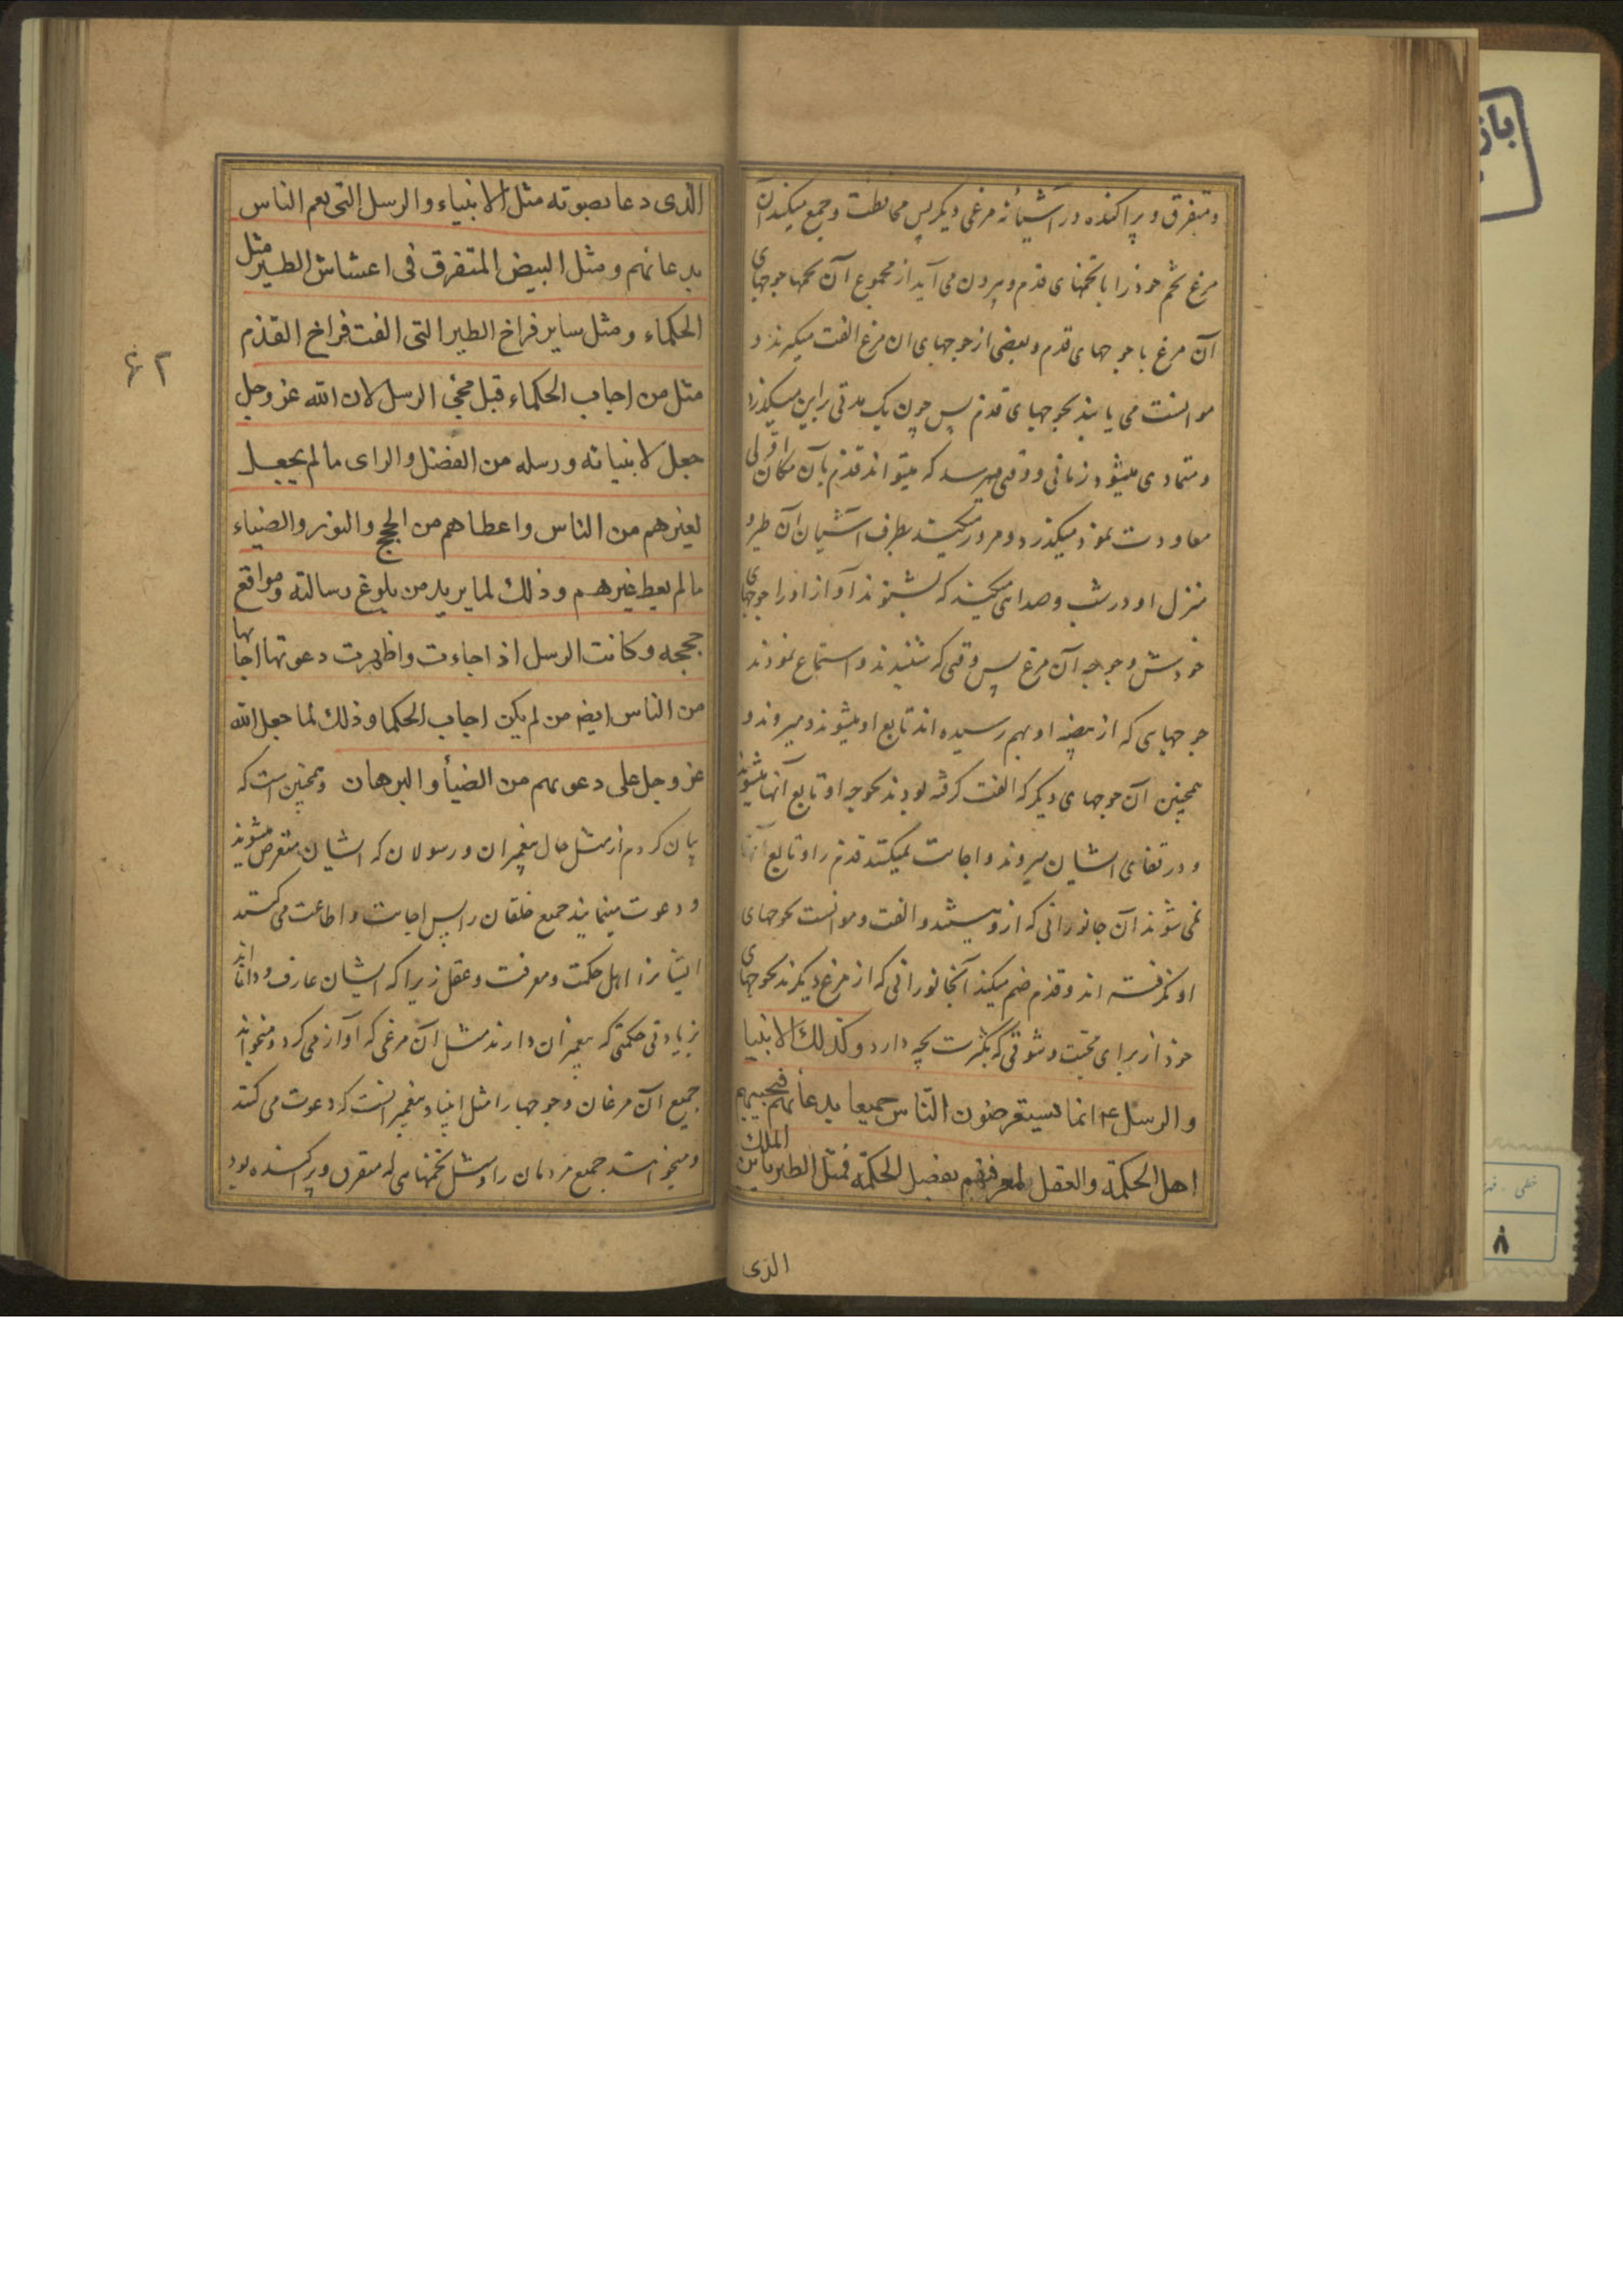 و متفرق و پراکنده در آشیانه مرغی دیکر پس محافظت و جمع میکند آن
مرغ تخم خود را با تخمهای قدم و بیرون می آید از مجموع آن تخمها جوجهای
آن مرغ با جوجهای قدم و بعضی از جوجهای ان مرغ الفت میکیرند و
موانست می یابند بجوجهای قدم پس چون یک مدتی براین میکذرد
و متمادی میشود زمانی و وقتی میرسد که میتواند قدم بآن مکان اولی
معاودت نمود میکذرد و مرور میکند بطرف آشیان آن طیر و
منزل او در شب و صدای میکند که بشنوند آواز او را جوجهای
خودش و جوجه آن مرغ پس وقتی که شنیدند و استماع نمودند
جوجهای که از بیضه او بهم رسیده اند تابع او میشوند و میروند و
همچنین آن جوجهای دیکر که الفت کرفته بودند بجوجه او تابع آنها میشوند
و در قفای ایشان میروند و اجابت نمیکنند قدم را و تابع آنها
نمی شوند آن جانورانی که ازو نیستند و الفت و موانست بجوجهای
او نکرفته اند و قدم ضم میکند آنجانورانی که از مرغ دیکرند بجوجهای
خود از برای محبت و شوقی که بکثرت بچه دارد وکذلک الانبیا
والرسل ع انما یستعرضون النّاس جمیعا بدعائهم فیجیبهم
اهل الحکمة والعقل لمعرفتهم بفضل الحکمة فمثل الطیر الملک
الذی
الذی دعا بصوته مثل الانبیاء والرسل التی یعم الناس
بدعائهم ومثل البیض المتفرق فی اعشاش الطیر مثل
الحکماء ومثل سایر فراخ الطیر التی الفت فراخ القذم
مثل من اجاب الحکماء قبل مجئ الرسل لان الله عز وجل
جعل لانبیائه ورسله من الفضل والرای مالم یجعل
لغیرهم من الناس واعطاهم من الحجج والنور والضیاء
مالم یعط غیرهم وذلک لما یرید من بلوغ رسالته ومواقع
حججه وکانت الرسل اذا جاءت واظهرت دعوتها اجابها
من الناس ایضا من لم یکن اجاب الحکما وذلک لما جعل الله
عز وجل علی دعوتهم من الضیأ والبرهان وهمچنین است که
بیان کردم از مثل حال پیغمبران و رسولان که ایشان متعرض میشوند
و دعوت مینمایند جمیع خلقان را پس اجابت و اطاعت می کنند
ایشانرا اهل حکمت و معرفت و عقل زیرا که ایشان عارف و دانااند
بزیادتی حکمتی که پیغمبران دارند مثل آن مرغی که آواز می کرد و میخواند
جمیع آن مرغان و جوجها را مثل انبیا و پیغمبر انست که دعوت می کنند
و میخوانند جمیع مردمان را و مثل تخمهای که متفرق و پراکنده بود
۶۲
۸